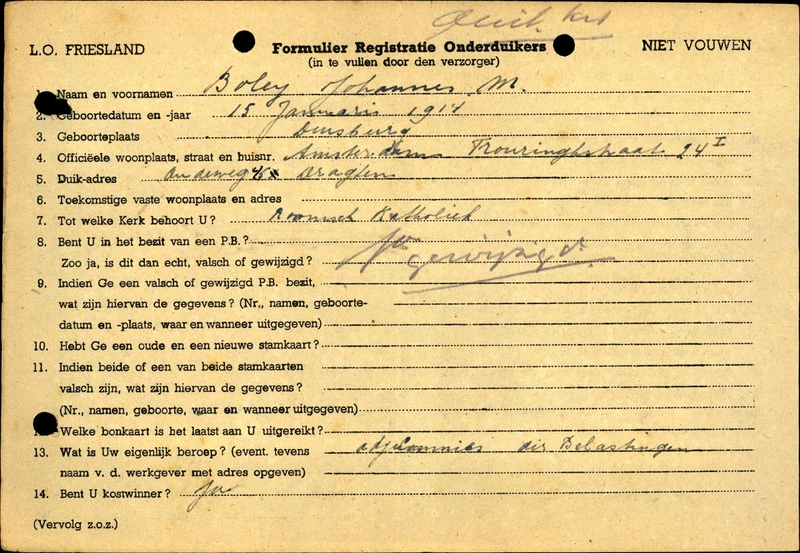 L.O. FRIESLAND
Formulier Registratie Onderduikers
NIET VOUWEN
(in te vullen door den verzorger)
1. Naam en voornamen Boley Johannes M.
2. Geboortedatum en -jaar 15 Januari 1914
3. Geboorteplaats Duisburg
4. Officiëele woonplaats, straat en huisnr. Amsterdam 24 I
5. Duik-adres Dragten
6. Toekomstige vaste woonplaats en adres
7. Tot welke Kerk behoort U? Roomsch Katholiek
8. Bent U in het bezit van een P.B.? ja
Zoo ja, is dit dan echt, valsch of gewijzigd? gewijzigd
9. Indien Ge een valsch of gewijzigd P.B. bezit,
wat zijn hiervan de gegevens? (Nr., namen, geboorte-
datum en -plaats, waar en wanneer uitgegeven)
10. Hebt Ge een oude en een nieuwe stamkaart?
11. Indien beide of een van beide stamkaarten
valsch zijn, wat zijn hiervan de gegevens?
(Nr., namen, geboorte, waar en wanneer uitgegeven)
Welke bonkaart is het laatst aan U uitgereikt?
13. Wat is Uw eigenlijk beroep? (event. tevens adj. commies dir Belastingen
naam v. d. werkgever met adres opgeven)
14. Bent U kostwinner? ja
(Vervolg z.o.z.)